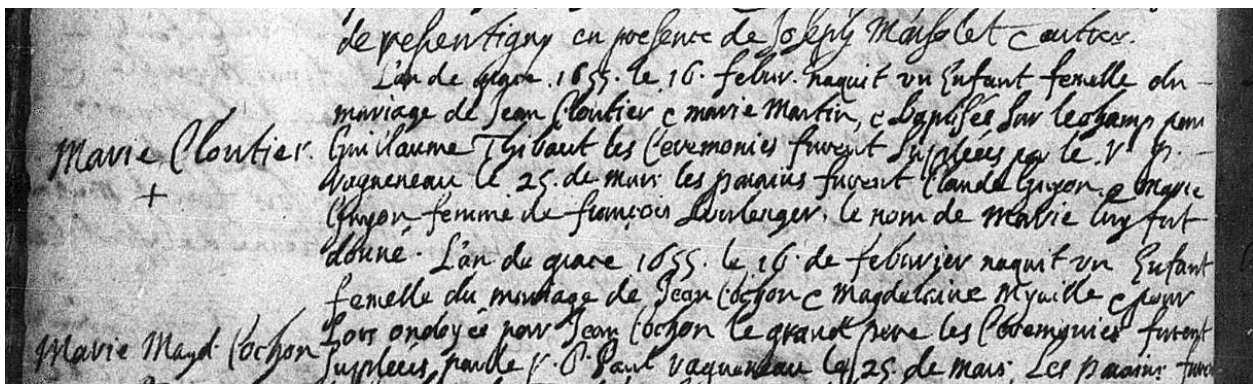 de repentigny en presence de Joseph Masolet
L'an de grace 1655. le 16. febur. naquit vn Enfant femelle du
mariage de Jean Cloutier & marie Martin, & baptisée Sur lechamp par
Marie Cloutier. Guillaume Thibaut les Ceremonies furent Supleées par le R. P.
+ Vagueneau le 25. de mars les parains furent Claude Guyon & Marie
Guyon femme de françois le nom de Marie luy fut
donné. L'an de grace 1655. le 16. de feburier naquit vn Enfant
femelle du mariage de Jean Cochon & Magdelaine Myville & pour
Lors ondoyée par Jean Cochon le grand pere les Ceremonies furent
Marie Magd. Cochon Suplees, par le R. P. Paul Vagueneau le 25. de mars. Les parains furent